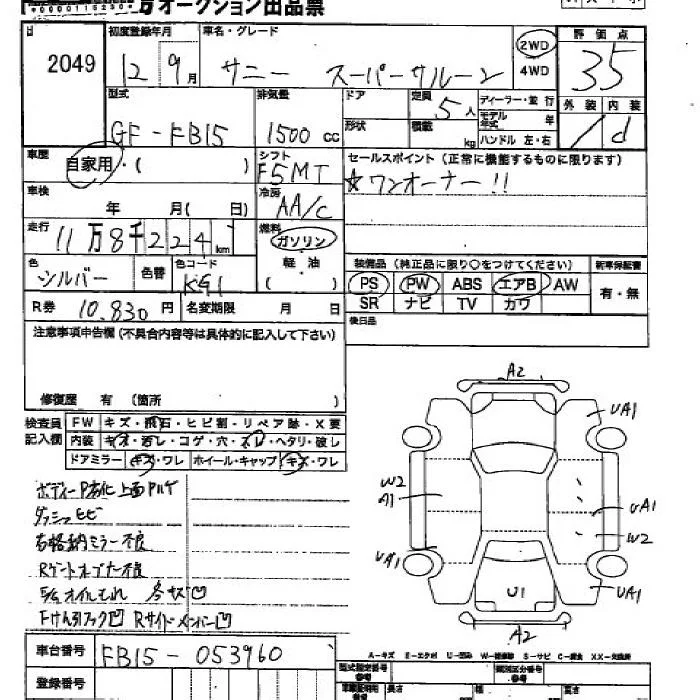 オークション出品票
2049
初度登録年月
12年9月
車名・グレード
サニー スーパーサルーン
2WD
4WD
評価点
35
外装 内装
d
型式
GF-FB15
排気量
1500cc
ドア
形状
定員
5人
積載
kg
ディーラー・並行
モデル年式 年
ハンドル 左・右
車歴
自家用・( )
シフト
F5MT
セールスポイント(正常に機能するものに限ります)
☆ワンオーナー!!
車検
年 月( 日)
冷房
AA/C
走行
11万8千224km
燃料
ガソリン
軽・油
( )
色
シルバー
色替
色コード
KG1
装備品(純正品に限り○をつけてください)
新車保証書
PS PW ABS エアB AW
SR ナビ TV カワ
有・無
R券 10,830円
名変期限 月 日
後日品
注意事項申告欄(不具合内容等は具体的に記入して下さい)
修復歴 有(箇所 )
検査員記入欄
FW キズ・飛石・ヒビ割・リペア跡・X要
内装 キズ・汚レ・コゲ・穴・スレ・ヘタリ・破レ
ドアミラー キズ・ワレ ホイール・キャップ キズ・ワレ
ボディーP劣化 上面Pハゲ
ダッシュヒビ
右格納ミラー不良
Rゲートオープナー不良
E/gオイルもれ
Fけん引フック凹 Rサイドメンバー凹
A2
UA1
W2
A1
UA1
W2
UA1
UA1
U1
A2
車台番号
FB15-053960
A-キズ E-エクボ U-凹み W-補修跡 S-サビ C-腐食 XX-交換済
登録番号
型式指定番号
参考
類別区分番号
参考
長さ
幅
高さ